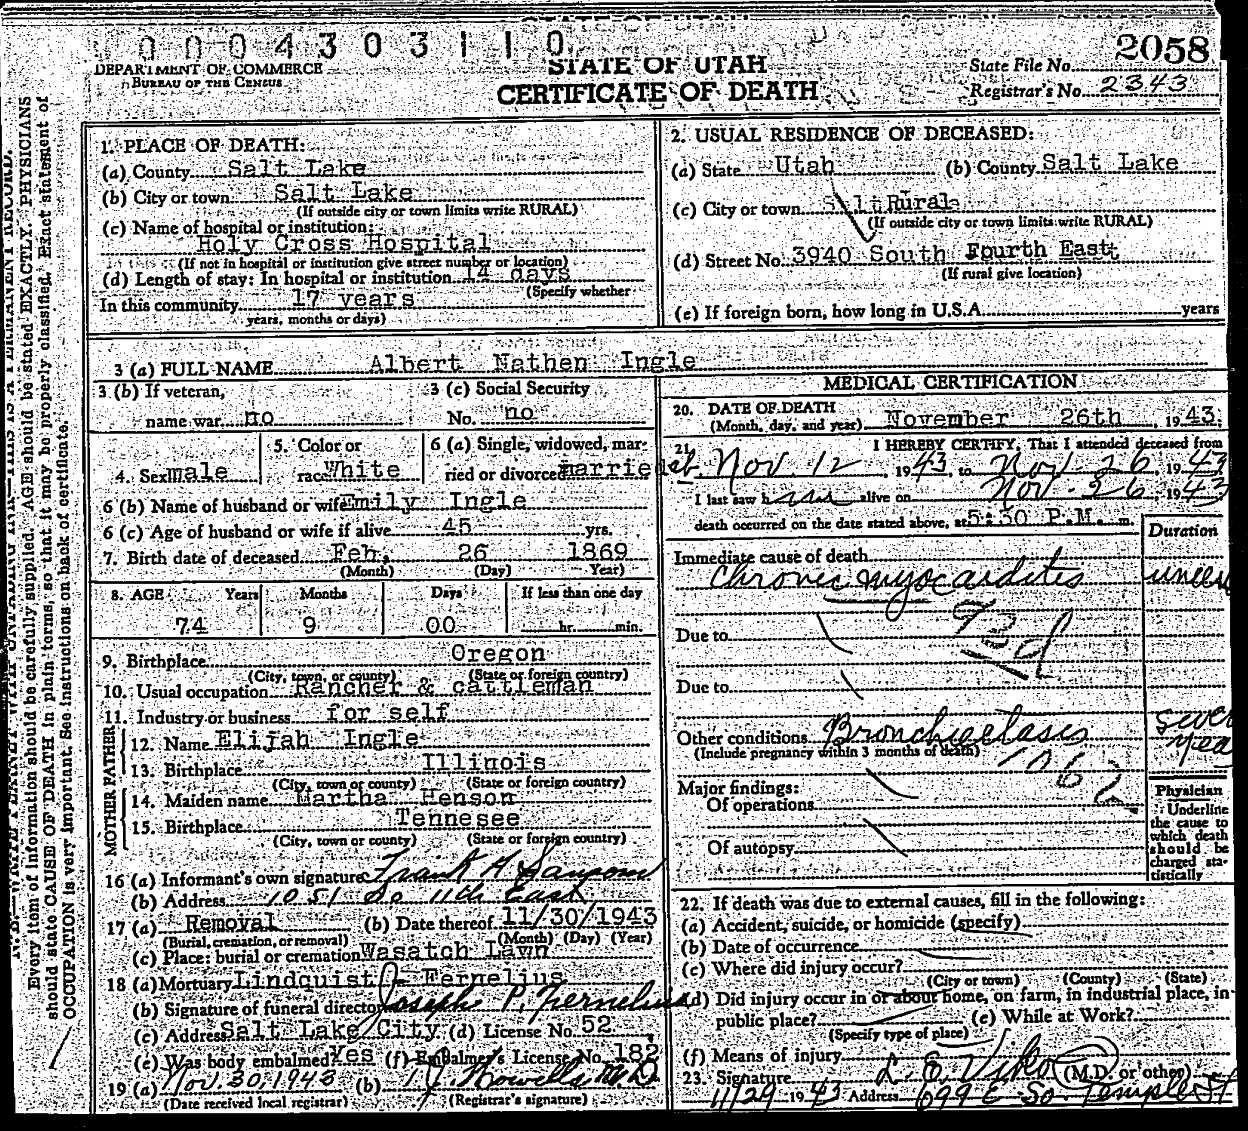 0004303110
2058
DEPARTMENT OF COMMERCE
BUREAU OF THE CENSUS
STATE OF UTAH
CERTIFICATE OF DEATH
State File No.
Registrar's No. 2343
Every item of information should be carefully supplied. AGE should be stated EXACTLY. PHYSICIANS
should state CAUSE OF DEATH in plain terms, so that it may be properly classified. Exact statement of
OCCUPATION is very important. See instructions on back of certificate.
1. PLACE OF DEATH:
(a) County Salt Lake
(b) City or town Salt Lake
(If outside city or town limits write RURAL)
(c) Name of hospital or institution:
Holy Cross Hospital
(If not in hospital or institution give street number or location)
(d) Length of stay: In hospital or institution 14 days
(Specify whether
In this community 17 years
years, months or days)
2. USUAL RESIDENCE OF DECEASED:
(a) State Utah (b) County Salt Lake
(c) City or town Rural
(If outside city or town limits write RURAL)
(d) Street No. 3940 South Fourth East
(If rural give location)
(e) If foreign born, how long in U.S.A. years
3 (a) FULL NAME Albert Nathen Ingle
3 (b) If veteran, 3 (c) Social Security
name war no No. no
4. Sex male 5. Color or race White 6 (a) Single, widowed, married or divorced married
6 (b) Name of husband or wife Emily Ingle
6 (c) Age of husband or wife if alive 45 yrs.
7. Birth date of deceased Feb. 26 1869
(Month) (Day) Year)
8. AGE Years Months Days If less than one day
74 9 00 hr. min.
9. Birthplace Oregon
(City, town, or county) (State or foreign country)
10. Usual occupation Rancher & cattleman
11. Industry or business for self
FATHER
12. Name Elijah Ingle
13. Birthplace Illinois
(City, town or county) (State or foreign country)
MOTHER
14. Maiden name Martha Henson
15. Birthplace Tennesee
(City, town or county) (State or foreign country)
16 (a) Informant's own signature Frank H
(b) Address 1051 So 11th East
17 (a) Removal (b) Date thereof 11/30/1943
(Burial, cremation, or removal) (Month) (Day) (Year)
(c) Place: burial or cremation Wasatch Lawn
18 (a) Mortuary Lindquist - Fernelius
(b) Signature of funeral director Joseph P. Fernelius
(c) Address Salt Lake City (d) License No. 52
(e) Was body embalmed Yes (f) Embalmer's License No. 182
19 (a) Nov. 30, 1943 (b) M.D.
(Date received local registrar) (Registrar's signature)
MEDICAL CERTIFICATION
20. DATE OF DEATH
(Month, day, and year) November 26th, 1943.
21. I HEREBY CERTIFY, That I attended deceased from
Nov. 12, 1943, to Nov 26, 1943
I last saw him alive on Nov. 26, 1943
death occurred on the date stated above, at 5:30 P.M. m.
Duration
Immediate cause of death
Chronic myocarditis
Due to 93d
Due to
Other conditions Bronchiectasis
(Include pregnancy within 3 months of death)
106
Major findings:
Of operations
Of autopsy
Physician
Underline
the cause to
which death
should be
charged sta-
tistically
22. If death was due to external causes, fill in the following:
(a) Accident, suicide, or homicide (specify)
(b) Date of occurrence
(c) Where did injury occur?
(City or town) (County) (State)
(d) Did injury occur in or about home, on farm, in industrial place, in
public place? (e) While at Work?
(Specify type of place)
(f) Means of injury
23. Signature L. E. Viko (M.D. or other)
11/29 1943 Address 699 E. So. Temple St